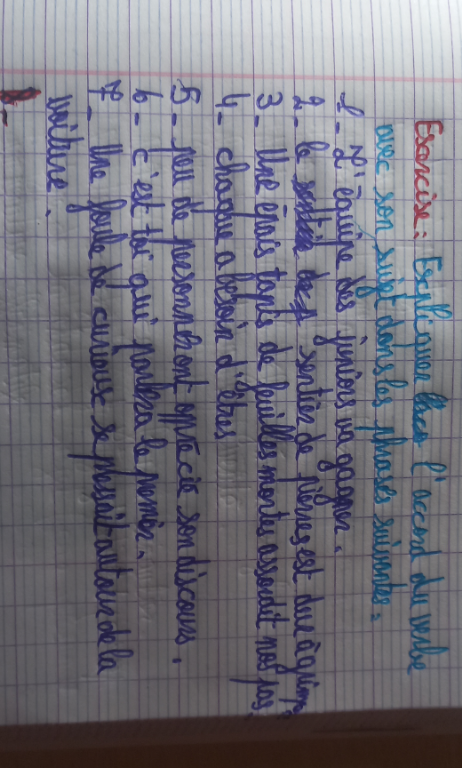 Exercice: Expliquer l'accord du verbe
avec son sujet dans les phrases suivantes.
1- L'équipe des juniors va gagner.
2- le sentier de pierres est dur à grimper.
3- Une épais tapis de feuilles mortes assourdit nos pas.
4- chaque a besoin d'êtres
5- peu de personnes ont apprécié son discours.
6- C'est toi qui parlera le premier.
7- Une foule de curieux se pressait autour de la
voiture.
8-